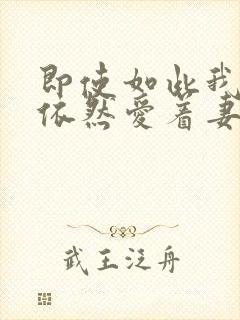 即使如此我
依然爱着妻
武王泛舟